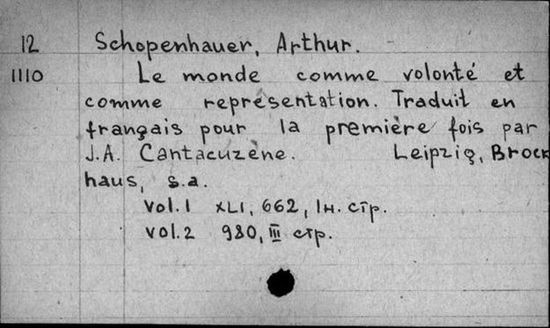 12 Schopenhauer, Arthur.
1110 Le monde comme volonté et
comme représentation. Traduit en
français pour la première fois par
J.A. Cantacuzène. Leipzig, Brock
haus, s.a.
vol.1 XLI, 662, 1н. стр.
vol.2 980, III стр.